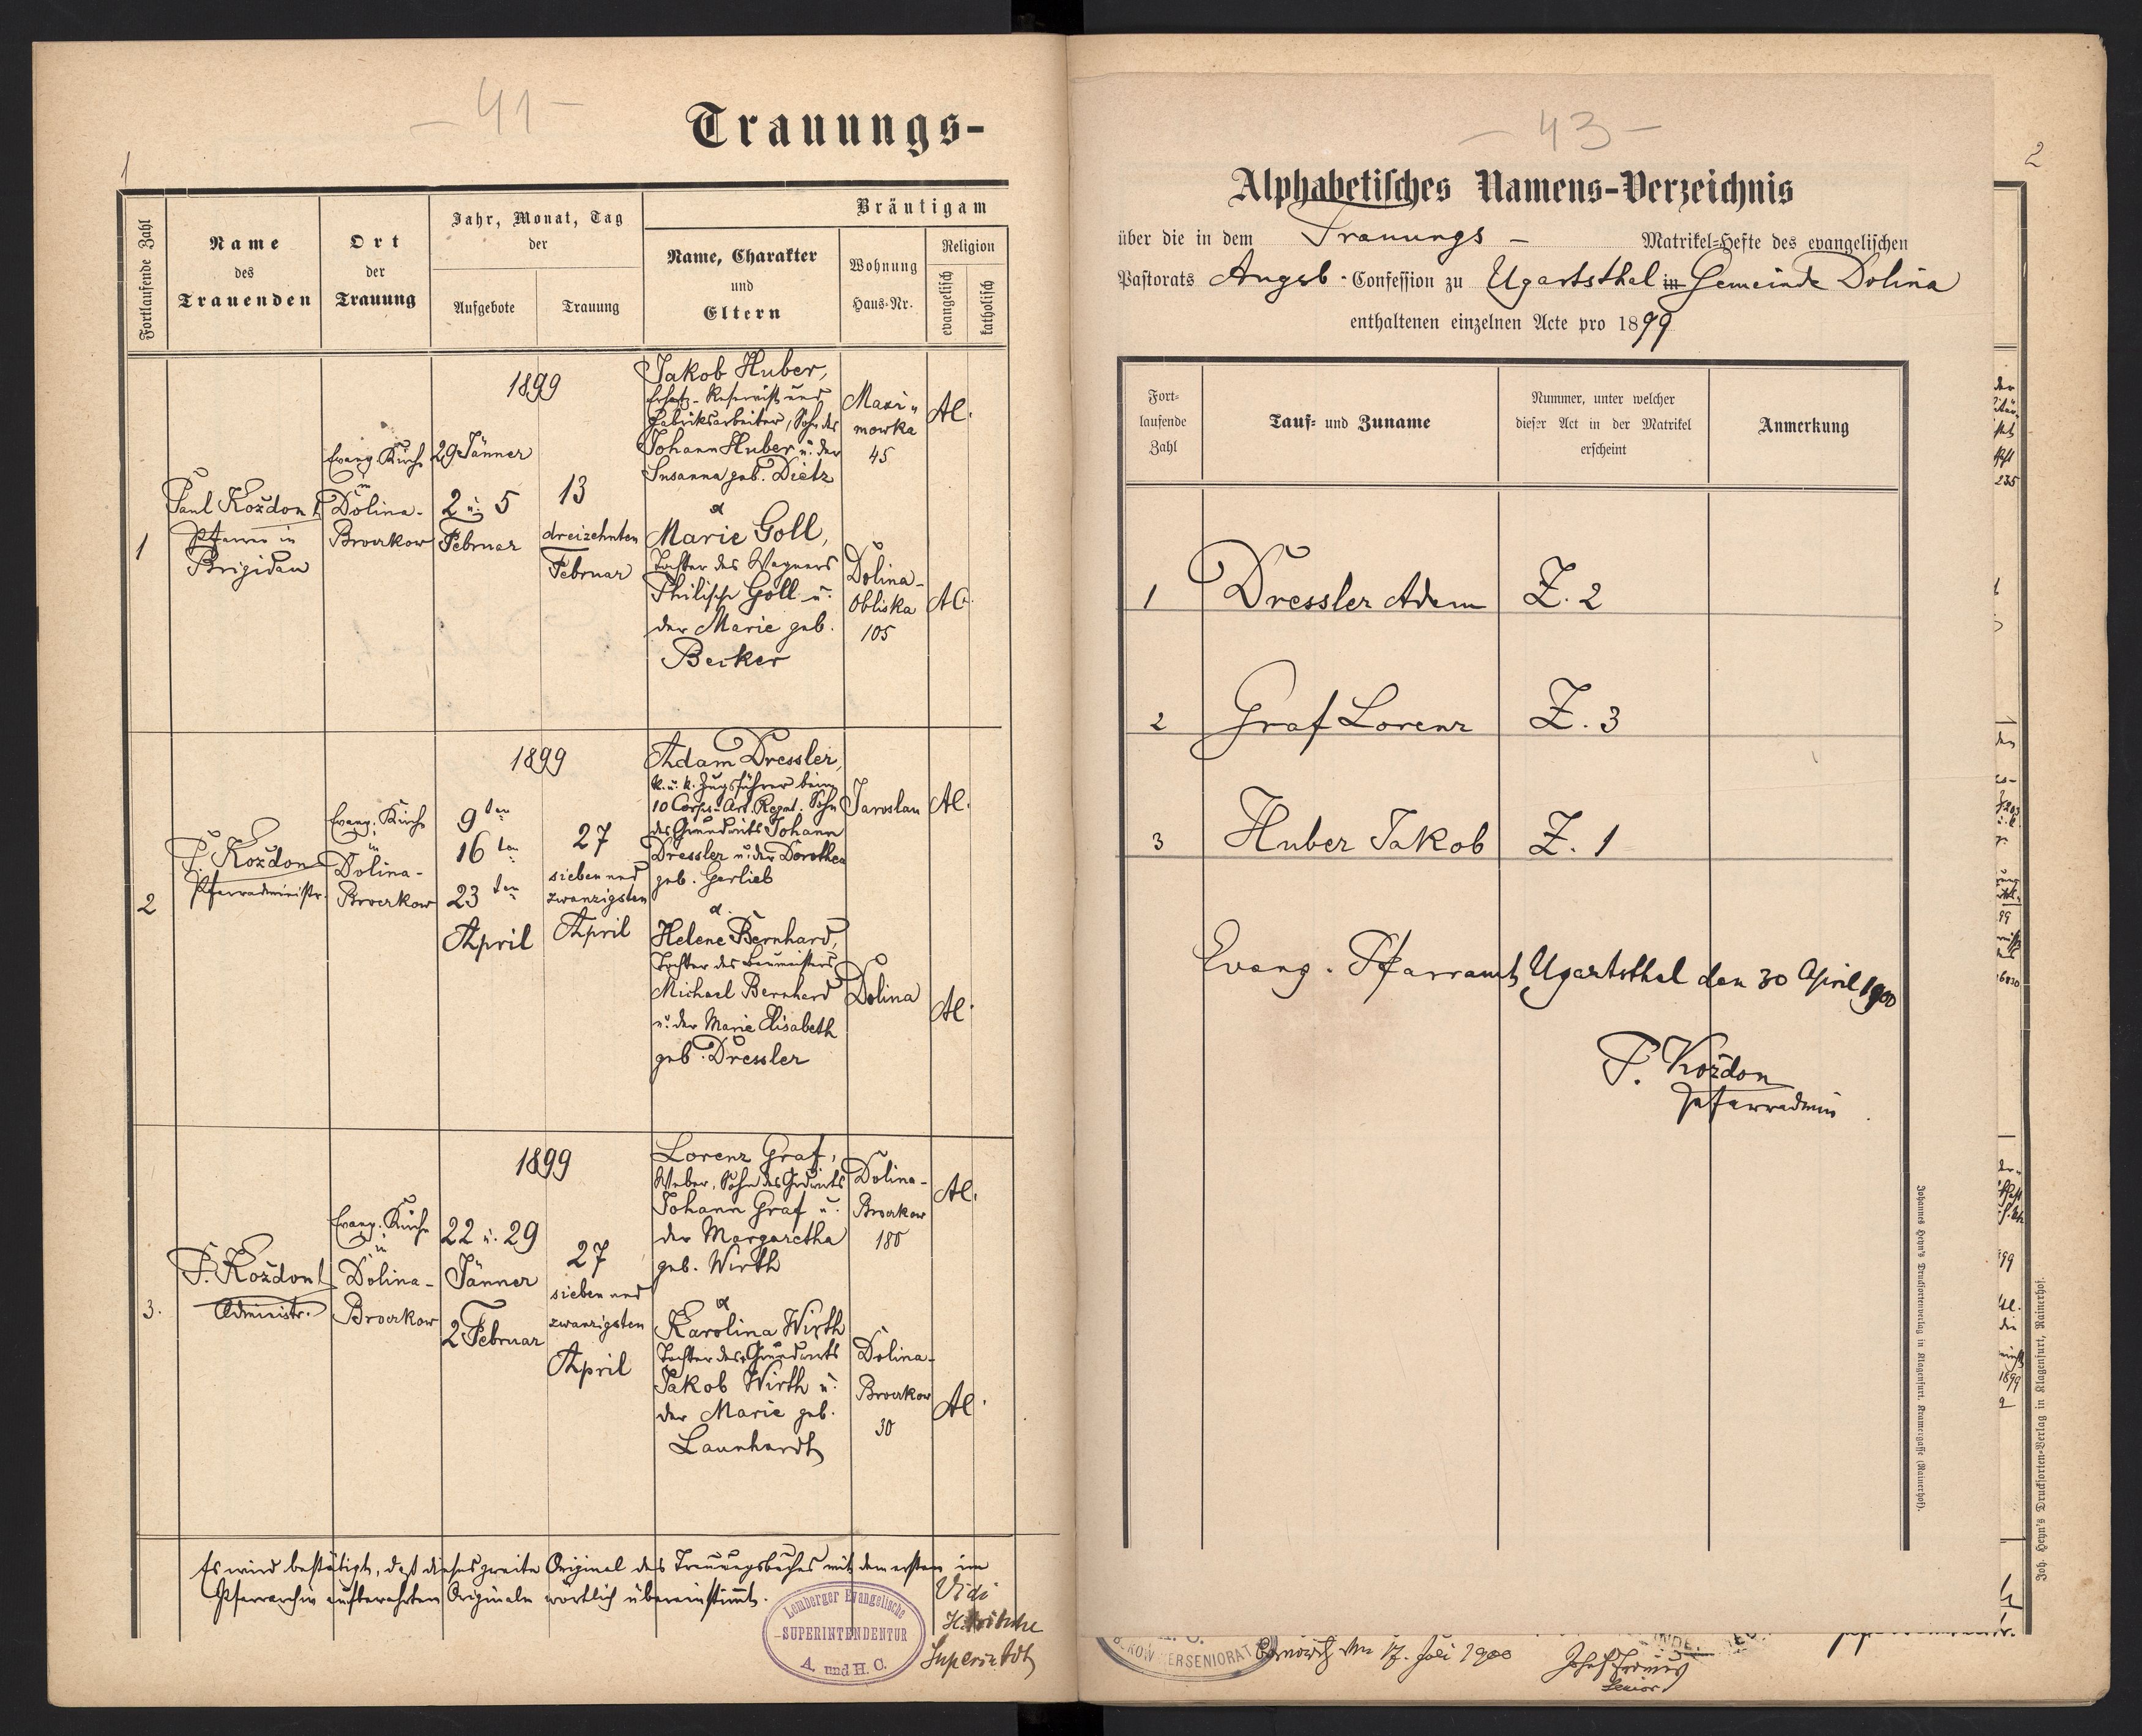 - 41 -
Trauungs-
1
Fortlaufende Zahl
Name
des
Trauenden
Ort
der
Trauung
Jahr, Monat, Tag
der
Aufgebote
Trauung
Bräutigam
Name, Charakter
und
Eltern
Wohnung
Haus-Nr.
Religion
evangelisch
katholisch
1
Paul Koždon
Pfarrer in
Brigidau
Evang. Kirche
in
Dolina-
Broczkow
1899
29 Jänner
2 u. 5
Februar
13
dreizehnten
Februar
Jakob Huber,
Ersatz-Reservist und
Fabriksarbeiter, Sohn des
Johann Huber u. der
Susanna geb. Dietz
&
Marie Goll,
Tochter des Wagners
Philipp Goll u.
der Marie geb.
Becker
Maxi-
mowka
45
Dolina-
Obliska
105
AC.
AC.
2
P. Koždon
Pfarradministr.
Evang. Kirche
in
Dolina-
Broczkow
1899
9ten
16ten
23ten
April
27
sieben und
zwanzigsten
April
Adam Dressler,
k. u. k. Zugsführer beim
10 Corps-Art. Regmt. Sohn
des Grundwirts Johann
Dressler u. der Dorothea
geb. Gerlieb
&
Helene Bernhard,
Tochter des Baumeisters
Michael Bernhard
u. der Marie Elisabeth
geb. Dressler
Jaroslau
Dolina
AC.
AC.
3.
P. Koždon
Administr.
Evang. Kirche
in
Dolina-
Broczkow
1899
22 u. 29
Jänner
2 Februar
27
sieben und
zwanzigsten
April
Lorenz Graf,
Weber, Sohn des Grdwirts
Johann Graf u.
der Margaretha
geb. Wirth
&
Karolina Wirth
Tochter des Grundwirts
Jakob Wirth u.
der Marie geb.
Launhardt
Dolina-
Broczkow
180
Dolina-
Broczkow
30
AC.
AC.
Es wird bestätigt, daß dieses zweite Original des Trauungsbuches mit dem ersten im
Pfarrarchiv aufbewahrten Originale wörtlich übereinstimmt.
Lemberger Evangelische
SUPERINTENDENTUR
A. und H. C.
Vidi
Superintdt
- 43 -
Alphabetisches Namens-Verzeichnis
über die in dem Trauungs- Matrikel-Hefte des evangelischen
Pastorats Augsb. Confession zu Ugartsthal in Gemeinde Dolina
enthaltenen einzelnen Acte pro 1899
Fort-
laufende
Zahl
Tauf- und Zuname
Nummer, unter welcher
dieser Act in der Matrikel
erscheint
Anmerkung
1 Dressler Adam Z. 2
2 Graf Lorenz Z. 3
3 Huber Jakob Z. 1
Evang. Pfarramt Ugartsthal den 30 April 1900
P. Koždon
Pfarradmin
Johannes Heyn's Drucksortenverlag in Klagenfurt, Kramergasse (Rainerhof).
2
Joh. Heyn's Drucksorten-Verlag in Klagenfurt, Rainerhof.
den 17. Juli 1900
Senior